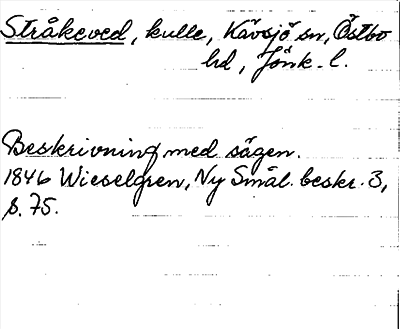 Stråkeved, kulle, Kävsjö sn, Östbo
hd, Jönk. l.
Beskrivning med sägen.
1846 Wieselgren, Ny Smål. beskr. 3,
s. 75.